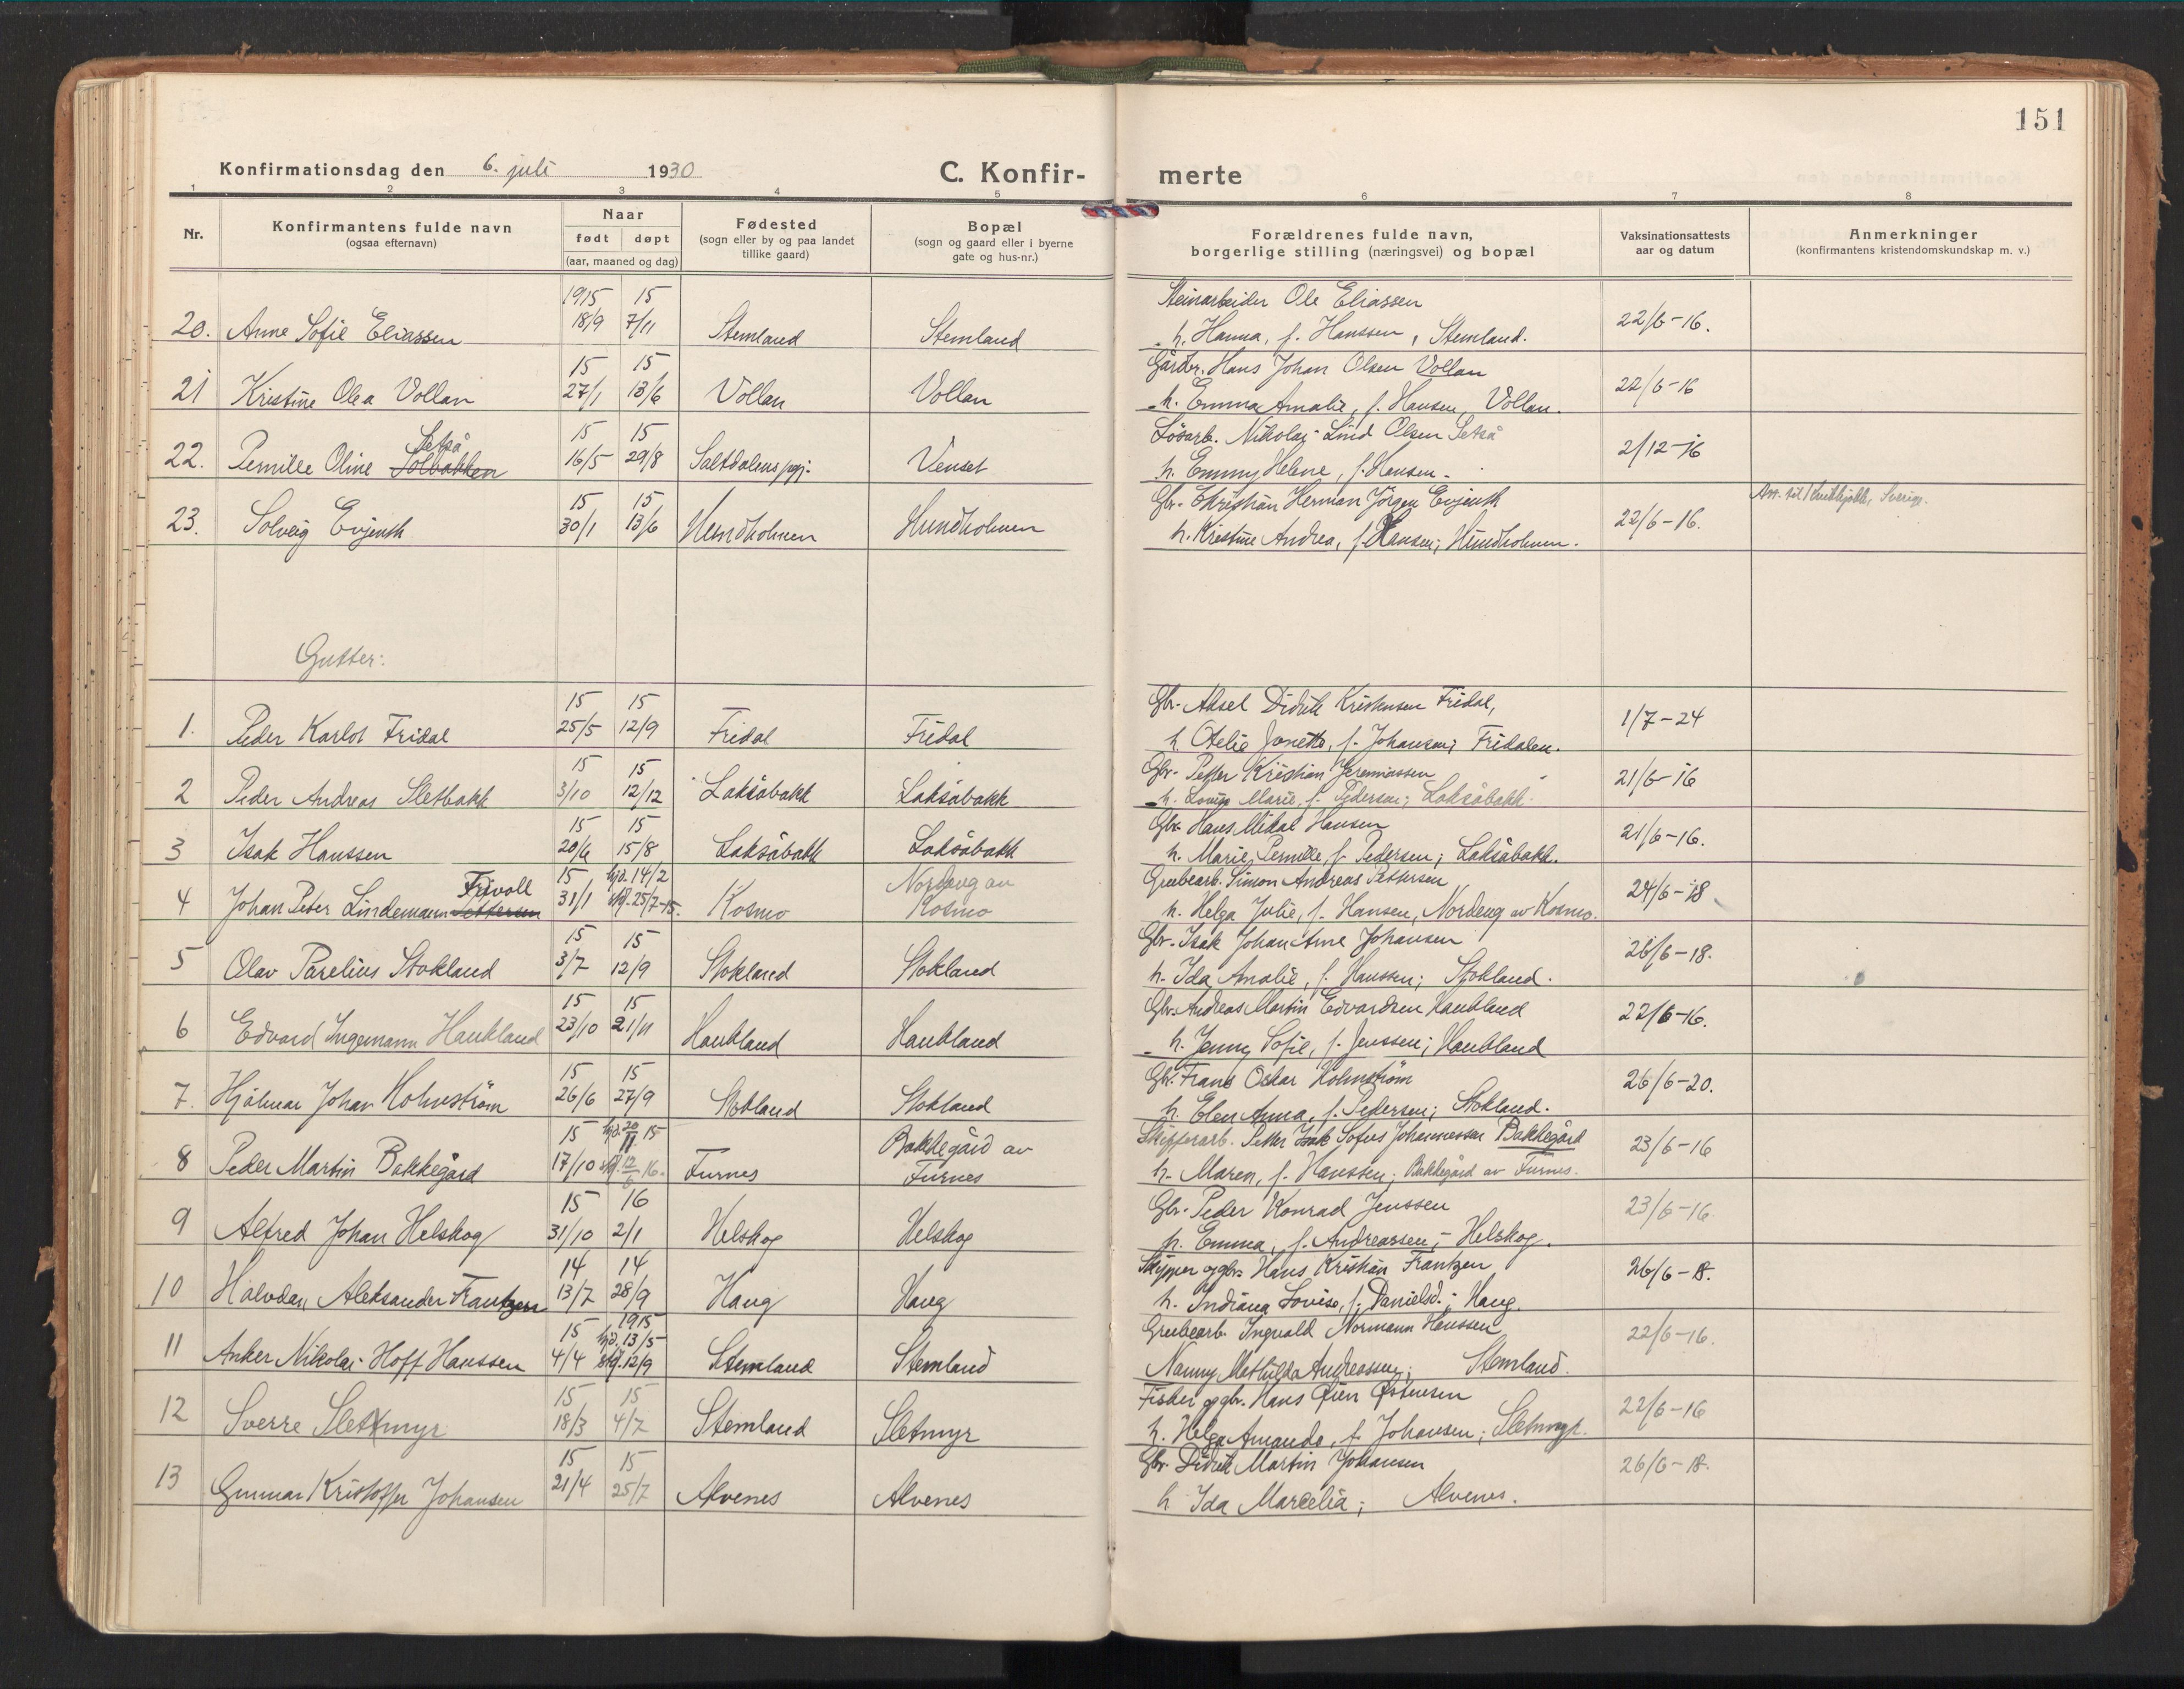 151
Konfirmationsdag den 6. juli 1930
C. Konfir- merte
1 2 3 4 5 6 7 8
Nr.
Konfirmantens fulde navn
(ogsaa efternavn)
Naar
født døpt
(aar, maaned og dag)
Fødested
(sogn eller by og paa landet
tillike gaard)
Bopæl
(sogn og gaard eller i byerne
gate og hus-nr.)
Forældrenes fulde navn,
borgerlige stilling (næringsvei) og bopæl
Vaksinationsattests
aar og datum
Anmerkninger
(konfirmantens kristendomskundskap m. v.)
1915 15 Steinarbeider Ole Eliassen
20. Anne Sofie Eliassen 18/9 7/11 Stemland Stemland h. Hanna, f. Hanssen, Stemland. 22/6-16.
15 15 Gårdbr. Hans Johan Olsen Vollan
21 Kristine Olea Vollan 27/1 13/6 Vollan Vollan h. Emma Amalie, f. Hansen, Vollan. 22/6-16
Setså 15 15 Løsarb. Nikolai Lind Olsen Setså
22. Pernille Oline Solbakken 16/5 29/8 Saltdalens pgj. Venset h. Emmy Helene, f. Hansen 2/12-16
15 15 Gbr. Christian Herman Jörgen Evjenth
23. Solveig Evjenth 30/1 13/6 Hundholmen Hundholmen h. Kristine Andrea, f. Hansen; Hundholmen. 22/6-16. Att. til Sverige.
Gutter:
15 15 Gbr. Aksel Didrik Kristensen Fridal,
1. Peder Karlot Fridal 25/5 12/9 Fridal Fridal h. Otelie Jonette, f. Johansen; Fridalen. 1/7-24
15 15 Gbr. Petter Kristian Jeremiassen
2 Peder Andreas Sletbakk 3/10 12/12 Laksåbakk Laksåbakk h. Lovise Marie, f. Pedersen; Laksåbakk. 21/6-16
15 15 Gbr. Hans Mikal Hansen
3 Isak Hanssen 20/6 15/8 Laksåbakk Laksåbakk h. Marie Pernille, f. Pedersen; Laksåbakk. 21/6-16.
Frivoll 15 hjd. 14/2 Nordeng av Grubearb. Simon Andreas Pettersen
4 Johan Peter Lindemann Pettersen 31/1 stf. 25/7-15. Kosmo Kosmo h. Helga Julie, f. Hansen, Nordeng av Kosmo. 24/6-18
15 15 Gbr. Isak Johan Arne Johansen
5 Olav Parelius Stokland 3/7 12/9 Stokland Stokland h. Ida Amalie, f. Hanssen; Stokland. 26/6-18.
15 15 Gbr. Andreas Martin Edvardsen Haukland
6 Edvard Ingemann Haukland 23/10 21/11 Haukland Haukland h. Jenny Sofie, f. Jenssen; Haukland 22/6-16.
15 15 Gbr. Frans Oskar Holmström
7. Hjalmar Johan Holmström 26/6 27/9 Stokland Stokland h. Elen Anna, f. Pedersen; Stokland. 26/6-20.
15 hjd. 20/11 15 Bakkegård av Skipperarb. Petter Isak Sofus Johannessen Bakkegård
8 Peder Martin Bakkegård 17/10 stf. 12/ 16. Furnes Furnes h. Maren, f. Hanssen; Bakkegård av Furnes. 23/6-16
15 16 Gbr. Peder Konrad Jenssen
9 Alfred Johan Helskog 31/10 2/1 Helskog Helskog h. Emma, f. Andreassen; Helskog. 23/6-16.
14 14 Skipper og gbr. Hans Kristian Frantzen
10 Halvdan Aleksander Frantzen 13/7 28/9 Haug Haug h. Indiana Lovise, f. Danielsd.; Haug. 26/6-18.
15 1915 hjd. 13/5 Grubearb. Ingvald Normann Hanssen
11 Anker Nikolai Hoff Hanssen 4/4 stf. 12/9 Stemland Stemland Nanny Mathilda Andreassen; Stemland. 22/6-16.
15 15 Fisker og gbr. Hans Øien Østensen
12 Sverre Sletmyr 18/3 4/7 Stemland Sletmyr h. Helga Amanda, f. Johansen; Sletmyr. 22/6-16
15 15 Gbr. Didrik Martin Johansen
13 Gunnar Kristoffer Johansen 21/4 25/7 Alvenes Alvenes h Ida Marcelia; Alvenes. 26/6-18.